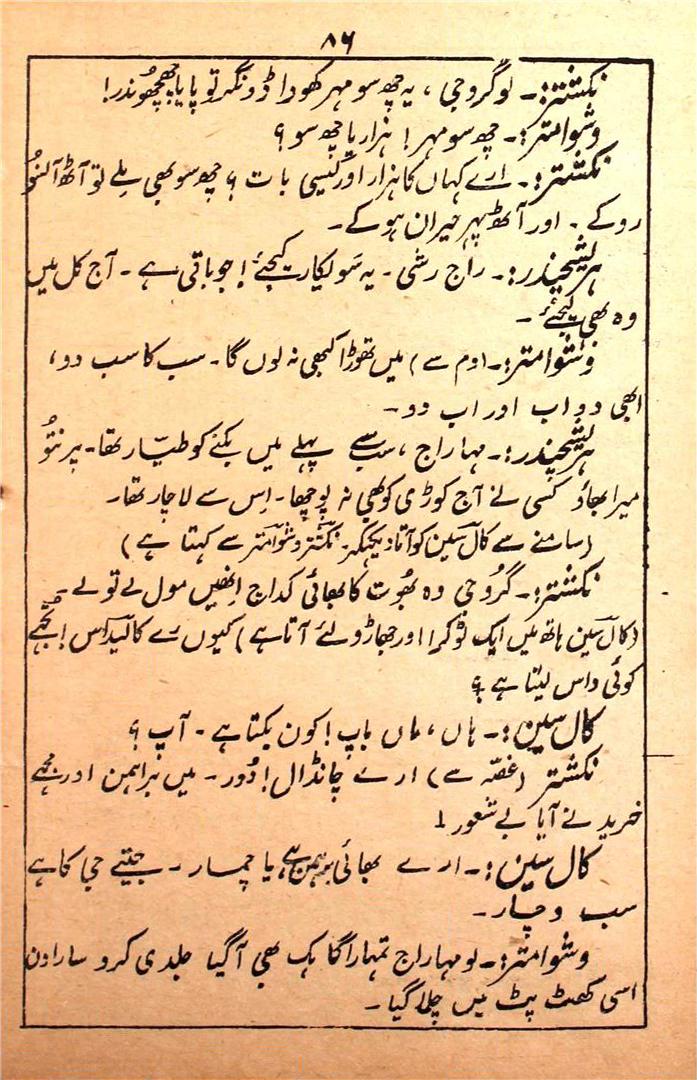 ۸۶
نکشتر:۔ لو گروجی ، یہ چھ سو مہر کھودا ڈونگر تو پایا چھچھوندر!
وشوامتر:۔ چھ سو مہر! ہزار یا چھ سو ؟
نکشتر:۔ ارے کہاں کا ہزار اور کیسی بات ؟ چھ سو بھی ملے تو آٹھ آٹھ آنسُو
روکے ۔ اور آٹھ پہر حیران ہو کے ۔
ہریشچندر:۔ راج رشی ۔ یہ سَو لیکار کیجئے ! جو باقی ہے ۔ آج کل میں
وہ بھی لیجئے ۔
وشوامتر:۔ (دم سے) میں تھوڑا کبھی نہ لوں گا ۔ سب کا سب دو ،
ابھی دو اب اور اب دو ۔
ہریشچندر:۔ مہاراج ، سب سے پہلے میں بکنے کو طیّار تھا ۔ پرنتُو
میرا بھاؤ کسی نے آج کوڑی کو بھی نہ پوچھا ۔ اِس سے لاچار تھا ۔
(سامنے سے کال سین کو آتا دیکھکر نکشتر وشوامتر سے کہتا ہے)
نکشتر:۔ گرُوجی وہ بھُوت کا بھائی کداچ اِنھیں مول لے تو لے ۔
(کال سین ہاتھ میں ایک ٹوکرا اور جھاڑو لئے آتا ہے) کیوں رے کالیداس ! تجھے
کوئی داس لینا ہے ؟
کال سین:۔ ہاں ، ماں باپ ! کون بکتا ہے ۔ آپ ؟
نکشتر (غصّہ سے) ارے چانڈال ! دُور ۔ میں براہمن اور مجھے
خریدنے آیا بے شعور !
کال سین:۔ ارے بھائی برہمن ہے یا چمار ۔ جیتے جی کا ہے
سب وچار ۔
وشوامتر:۔ لو مہاراج تمہارا گاہک بھی آگیا جلدی کرو سارا دن
اسی کھٹ پٹ میں چلا گیا ۔